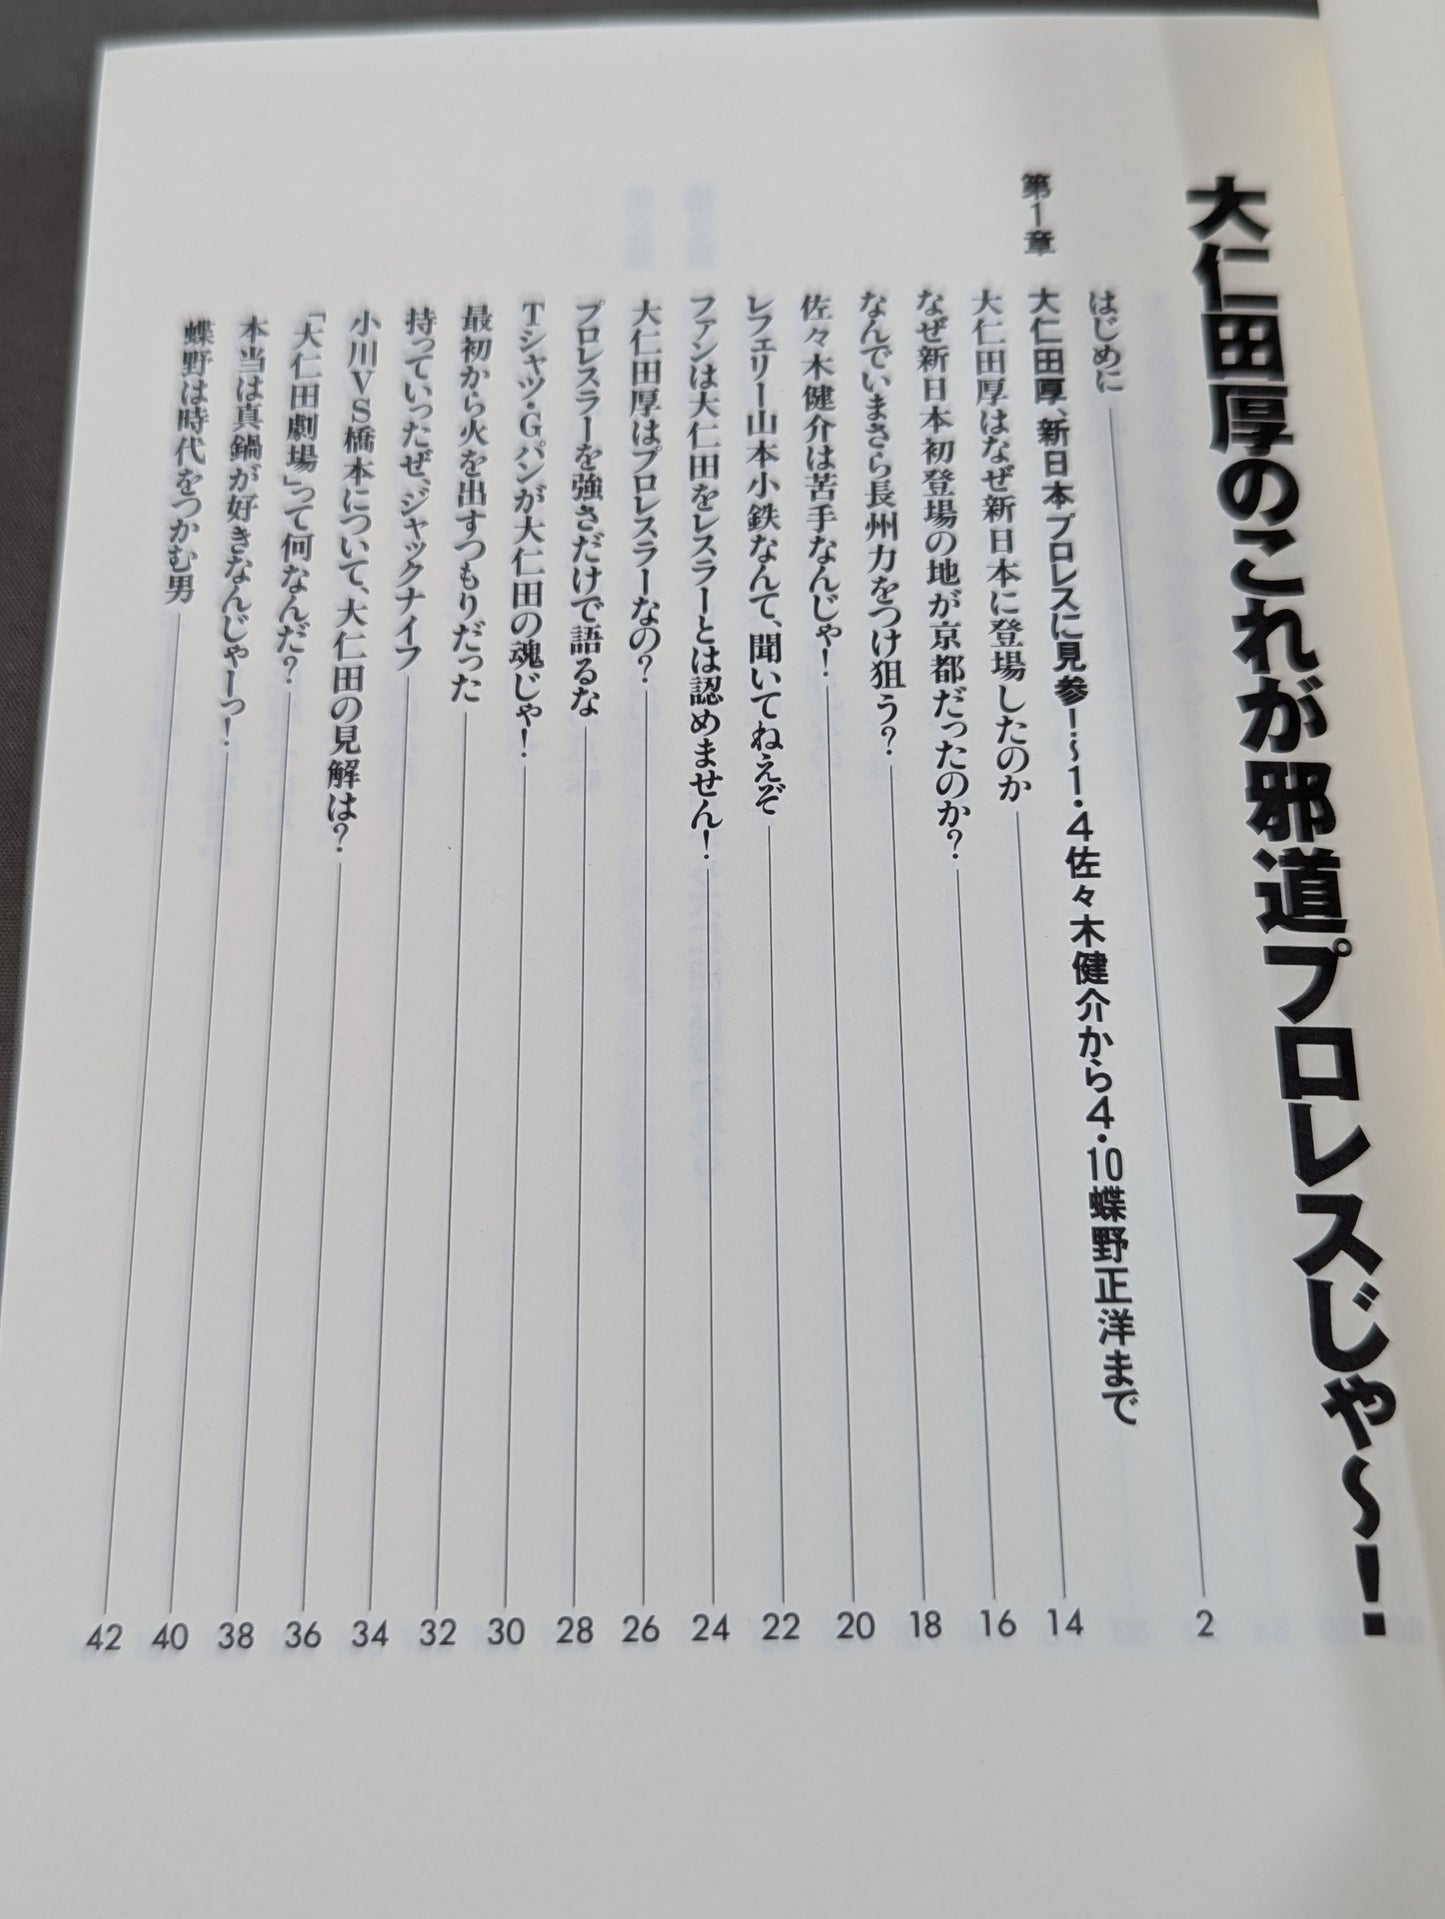 大仁田厚のこれが邪道プロレスじゃ〜！
はじめに 2
第1章 大仁田厚、新日本プロレスに見参！〜1・4佐々木健介から4・10蝶野正洋まで
大仁田厚はなぜ新日本に登場したのか 14
なぜ新日本初登場の地が京都だったのか？ 16
なんでいまさら長州力をつけ狙う？ 18
佐々木健介は苦手なんじゃ！ 20
レフェリー山本小鉄なんて、聞いてねえぞ 22
ファンは大仁田をレスラーとは認めません！ 24
大仁田厚はプロレスラーなの？ 26
プロレスラーを強さだけで語るな 28
Tシャツ・Gパンが大仁田の魂じゃ！ 30
最初から火を出すつもりだった 32
持っていったぜ、ジャックナイフ 34
小川VS橋本について、大仁田の見解は？ 36
「大仁田劇場」って何なんだ？ 38
本当は真鍋が好きなんじゃーっ！ 40
蝶野は時代をつかむ男 42